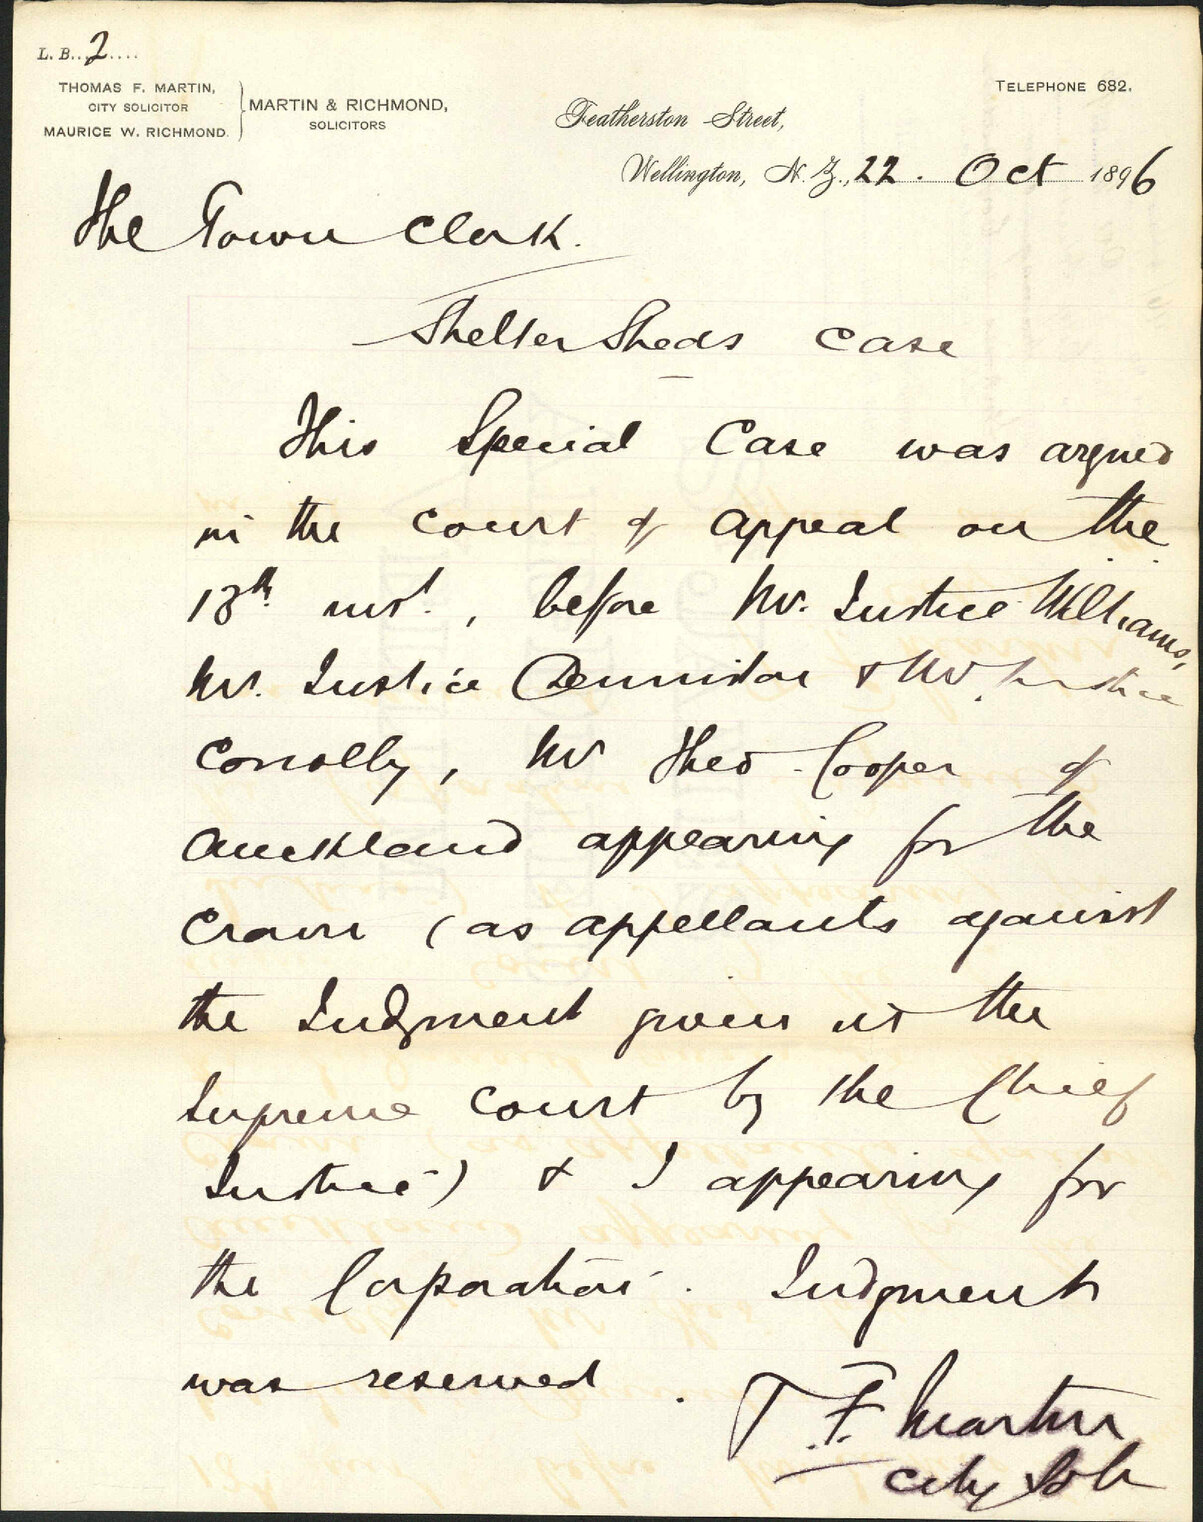 L. B. 2
THOMAS F. MARTIN,
CITY SOLICITOR
MAURICE W. RICHMOND.
MARTIN & RICHMOND,
SOLICITORS
TELEPHONE 682.
Featherston Street,
Wellington, N. Z., 22. Oct 1896
The Town Clerk.
Shelter Sheds Case
This Special Case was argued
in the Court of Appeal on the
13th inst., before Mr. Justice Williams,
Mr. Justice Denniston & Mr. Justice
Conolly, Mr Theo Cooper of
Auckland appearing for the
Crown (as appellants against
the Judgment given in the
Supreme Court by the Chief
Justice) & I appearing for
the Corporation. Judgment
was reserved.
T. F. Martin
City Solr